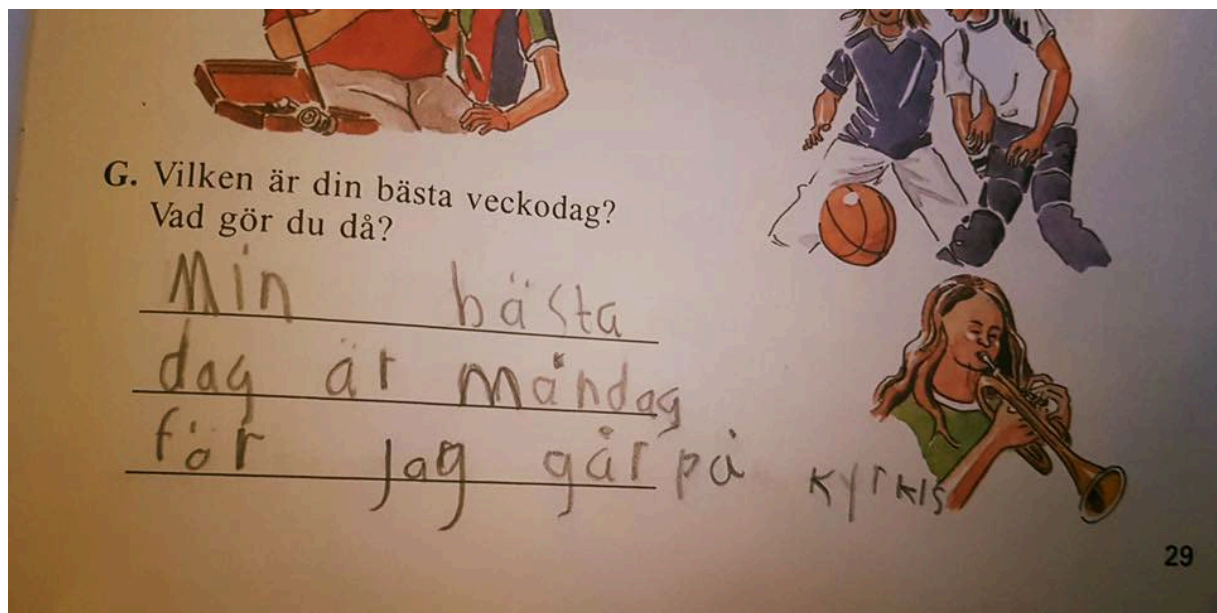 G. Vilken är din bästa veckodag?
Vad gör du då?
Min bästa
dag är måndag
för jag går på kyrkis
29